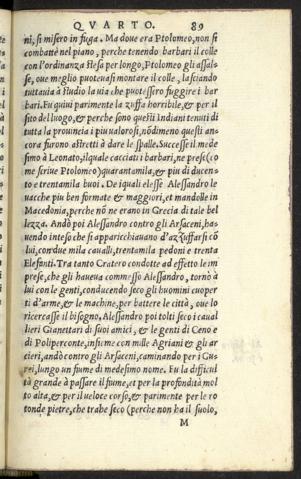 QVARTO. 89
ni, si misero in fuga. Ma doue era Ptolomeo, non si
combattè nel piano, perche tenendo barbari il colle
con l'ordinanza stesa per longo, Ptolomeo gli assal-
se, oue meglio poteuasi montare il colle, lasciando
tuttauia à studio la uia che puotessero fuggire i bar
bari. Fu quiui parimente la zuffa horribile, & per il
sito del luogo, & perche sono questi Indiani tenuti di
tutta la prouincia i piu ualorosi, nōdimeno questi an-
cora furono astretti à dare le spalle. Successe il mede
simo à Leonato, ilquale cacciati i barbari, ne prese (co
me scriue Ptolomeo) quarantamila, & piu di ducen-
to e trentamila buoi. De iquali elesse Alessandro le
uacche piu ben formate & maggiori, et mandolle in
Macedonia, perche nō ne erano in Grecia di tale bel
lezza. Andò poi Alessandro contro gli Arsaceni, ha-
uendo inteso che si apparicchiauano d'azzuffarsi cō
lui, con due mila caualli, trentamila pedoni e trenta
elefanti. Tra tanto Critero condotte ad effetto le im
prese, che gli haueua commesso Alessandro, tornò à
lui con le genti, conducendo seco gli huomini cuoper
ti d'arme, & le machine, per battere le città, oue lo
ricercasse il bisogno. Alessandro poi tolti seco i caual
lieri Gianettari di suoi amici, & le genti di Ceno e
di Poliperconte, insieme con mille Agriani & gli ar
cieri, andò contro gli Arsaceni, caminando per i Gu-
rei, lungo un fiume di medesimo nome. Fu la difficul
tà grande à passare il fiume, et per la profondità mol
to alta, & per il ueloce corso, & parimente per le ro
tonde pietre, che trahe seco (perche non ha il suolo,
M